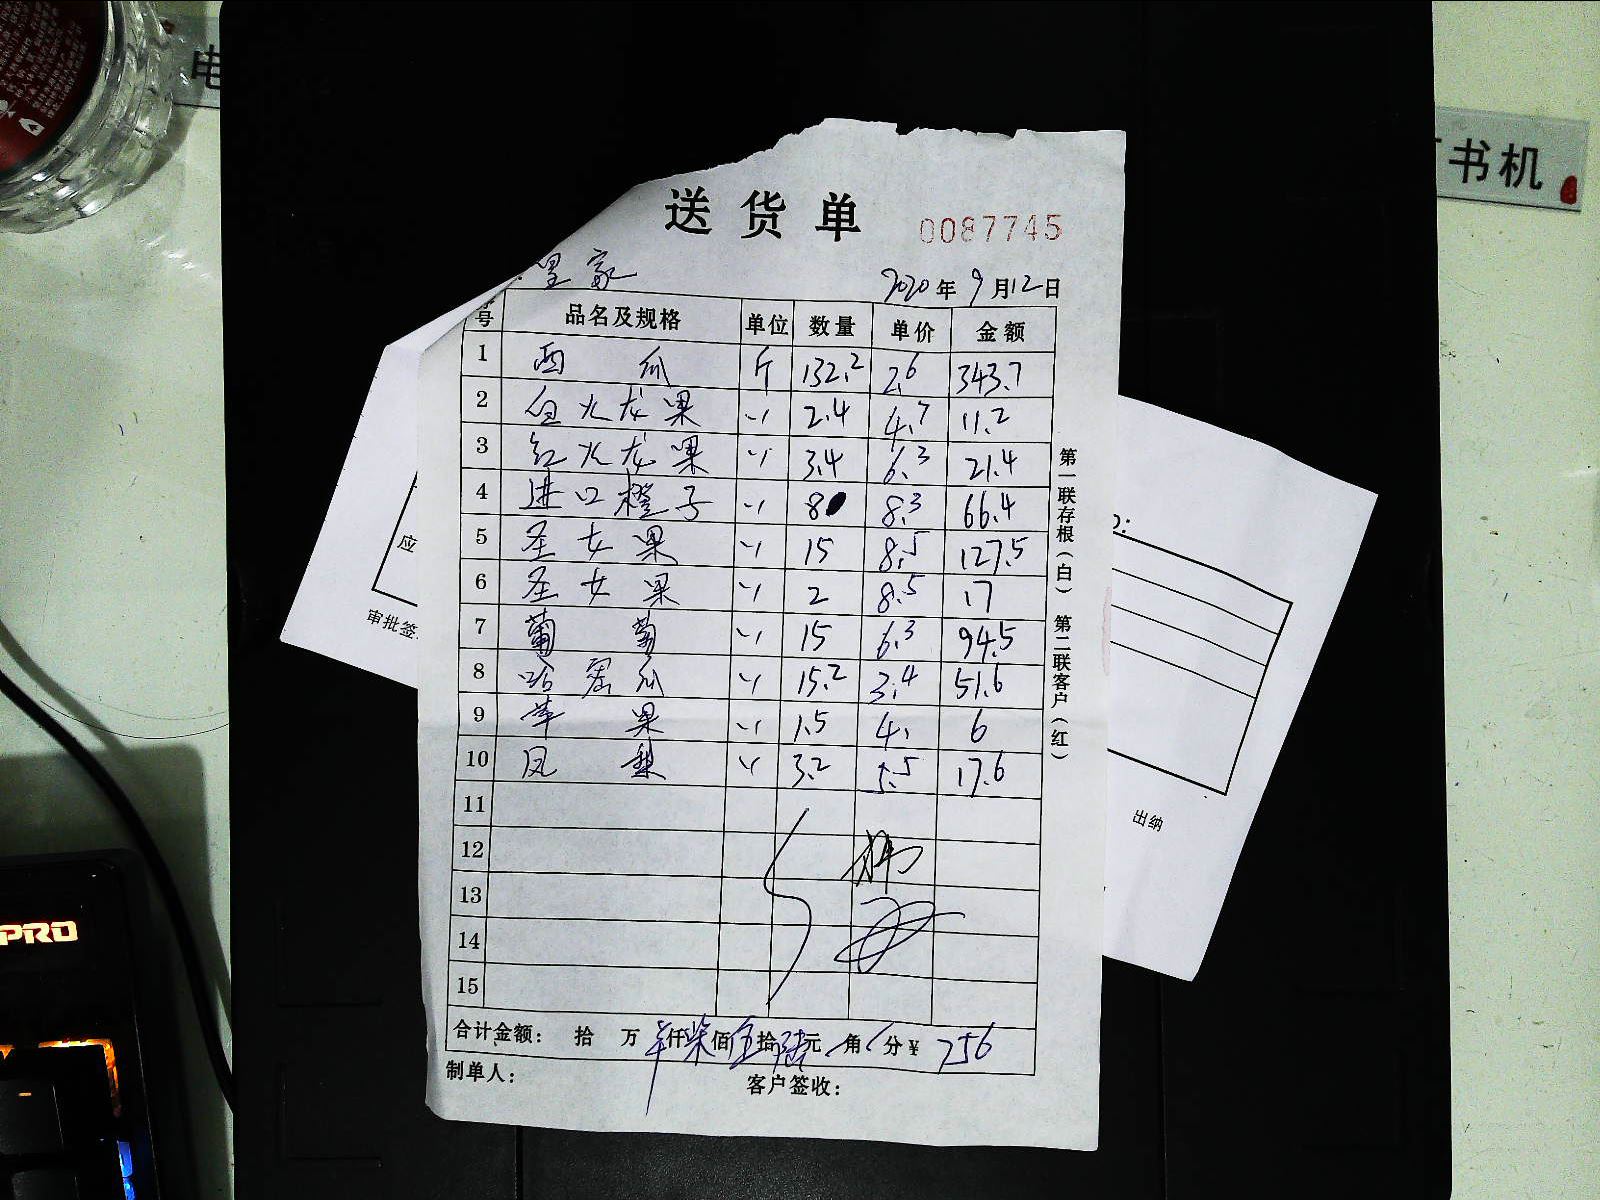 电
书机
送货单 0087745
皇家 2020年9月12日
号 品名及规格 单位 数量 单价 金额
1 西瓜 斤 132.2 2.6 343.7
2 白火龙果 〃 2.4 4.7 11.2
3 红火龙果 〃 3.4 6.3 21.4
4 进口橙子 〃 8 8.3 66.4
5 圣女果 〃 15 8.5 127.5
6 圣女果 〃 2 8.5 17
7 葡萄 〃 15 6.3 94.5
8 哈密瓜 〃 15.2 3.4 51.6
9 苹果 〃 1.5 4. 6
10 凤梨 〃 3.2 5.5 17.6
11
12
13
14
15
合计金额: 拾 万 仟柒佰伍拾陆元 角 分¥ 756
制单人: 客户签收:
第一联存根(白) 第二联客户(红)
应
审批签
出纳
PRO